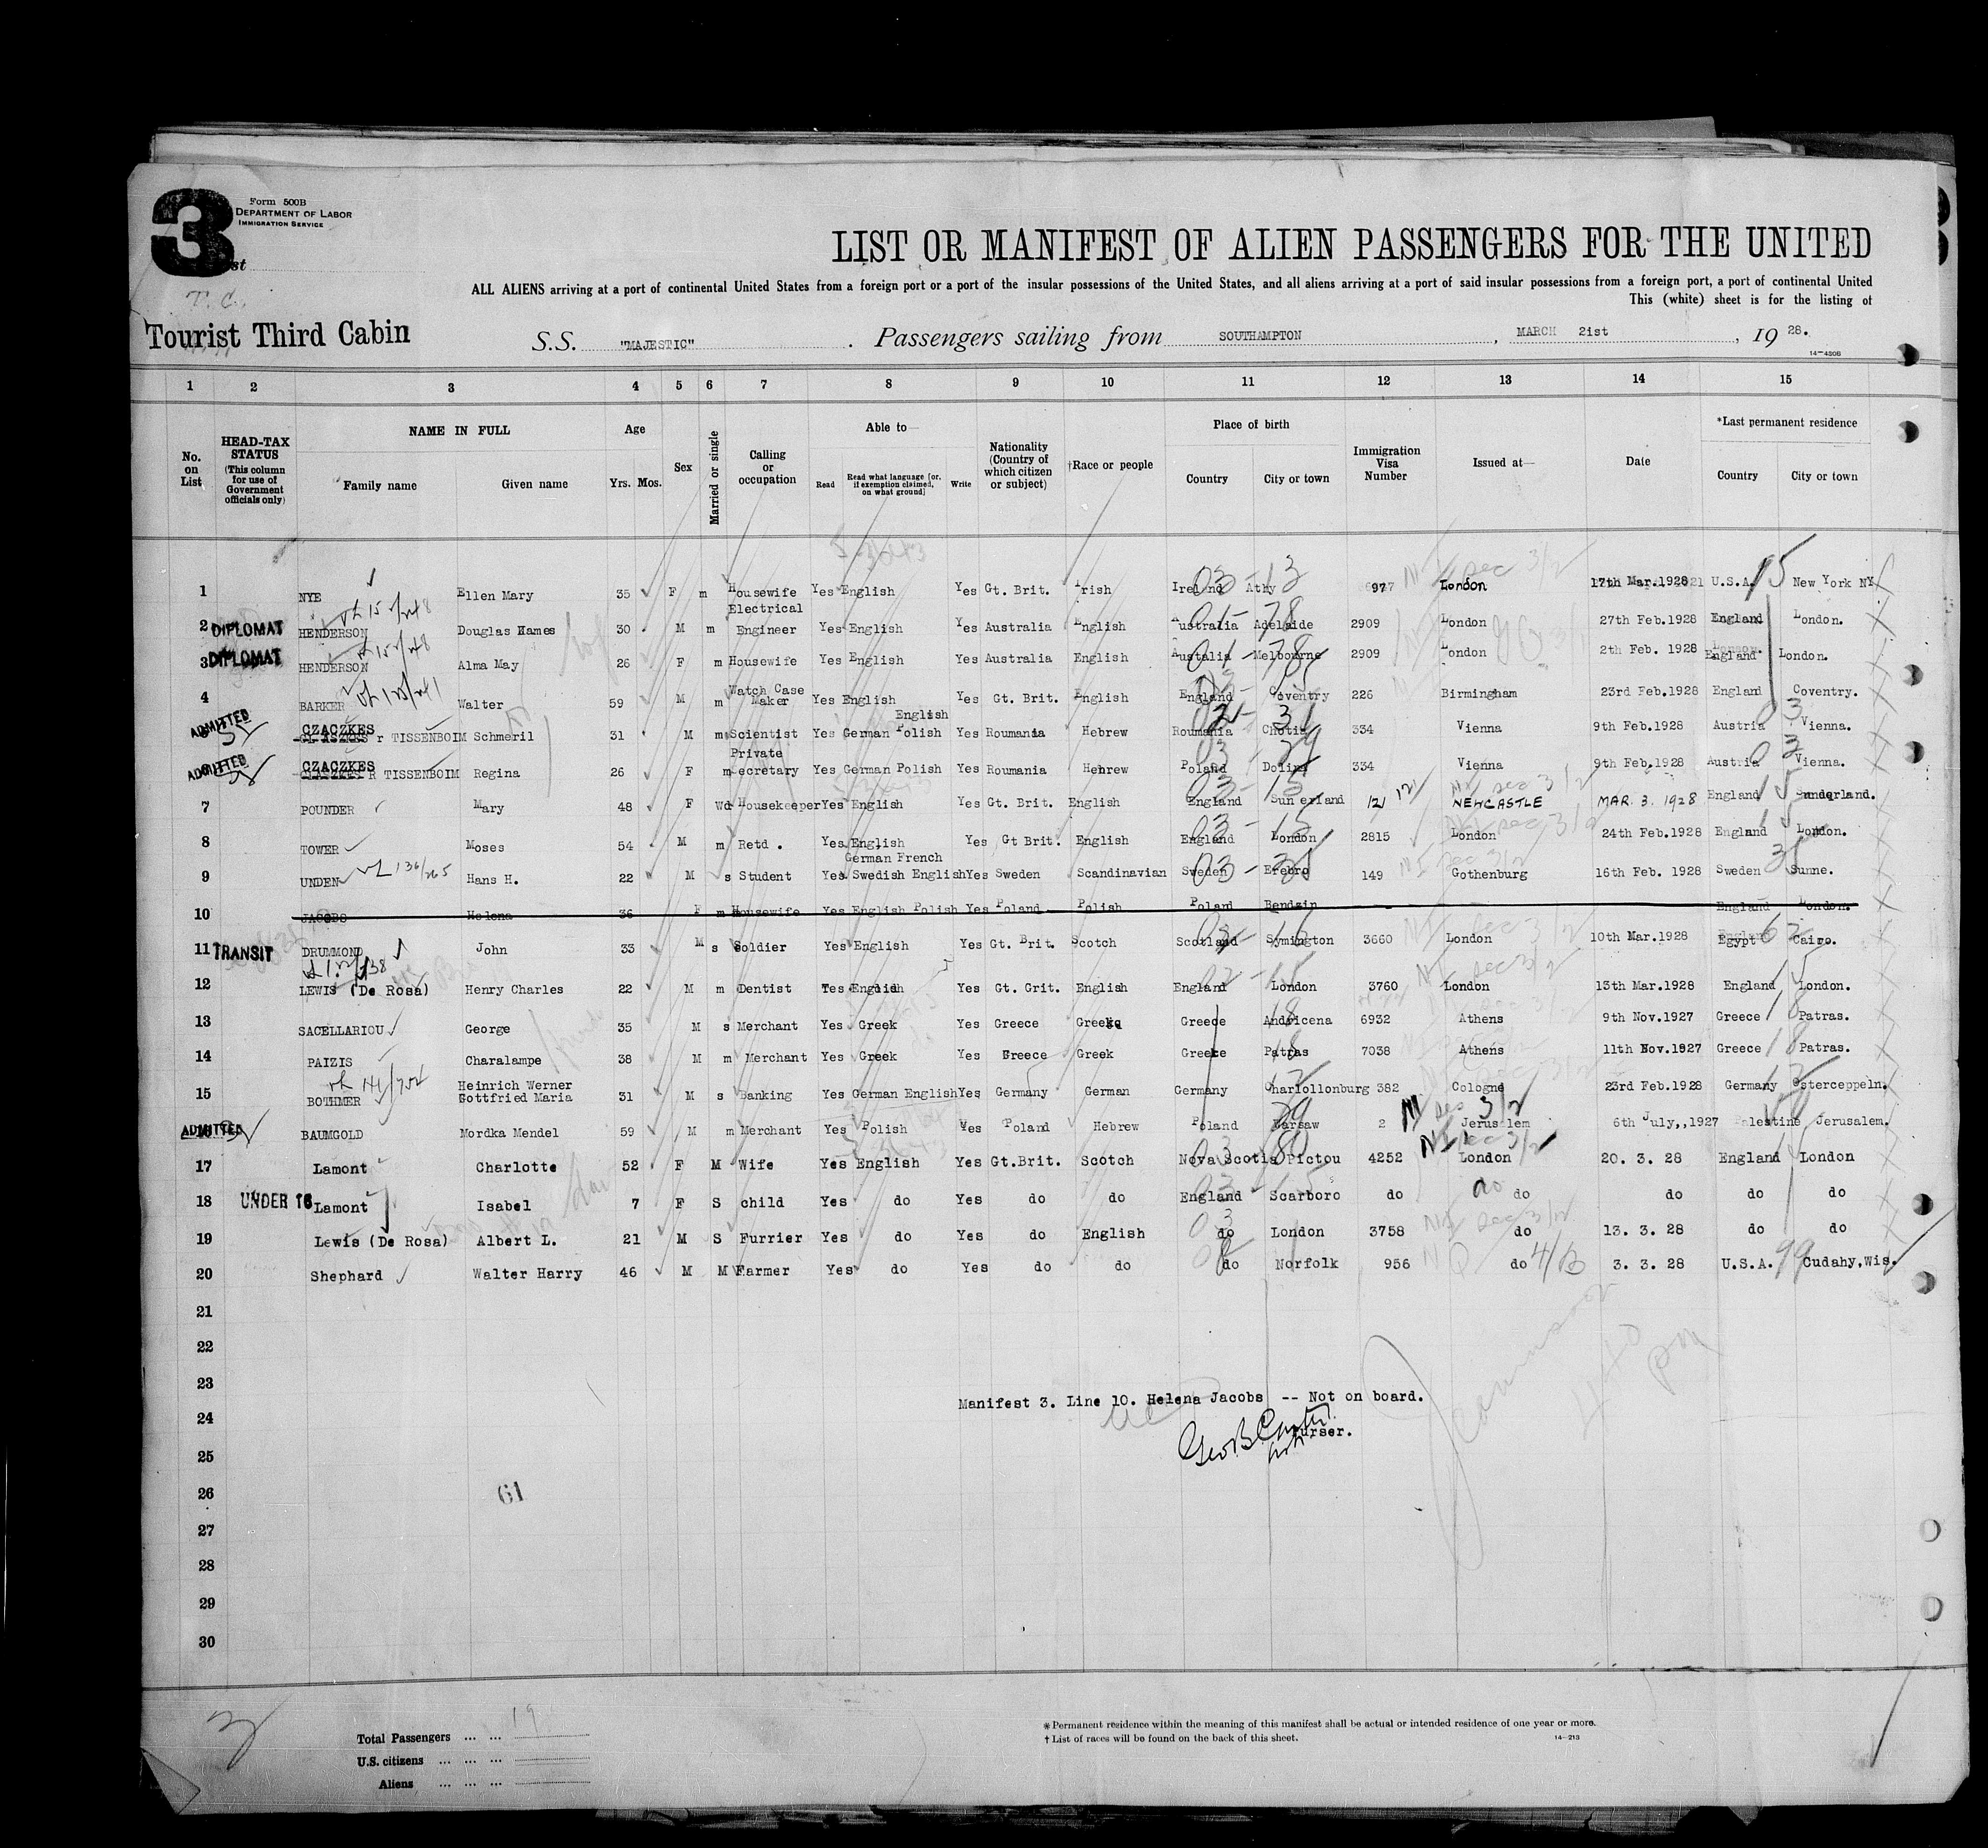 3
Form 500B
DEPARTMENT OF LABOR
IMMIGRATION SERVICE
T. C.
LIST OR MANIFEST OF ALIEN PASSENGERS FOR THE UNITED
ALL ALIENS arriving at a port of continental United States from a foreign port or a port of the insular possessions of the United States, and all aliens arriving at a port of said insular possessions from a foreign port, a port of continental United
This (white) sheet is for the listing of
Tourist Third Cabin S.S. "MAJESTIC". Passengers sailing from SOUTHAMPTON, MARCH 21st, 1928.
14—430B
1 2 3 4 5 6 7 8 9 10 11 12 13 14 15
No. on List HEAD-TAX STATUS (This column for use of Government officials only) NAME IN FULL Family name Given name Age Yrs. Mos. Sex Married or single Calling or occupation Able to— Read Read what language [or, if exemption claimed, on what ground] Write Nationality (Country of which citizen or subject) †Race or people Place of birth Country City or town Immigration Visa Number Issued at— Date *Last permanent residence Country City or town
1 NYE Ellen Mary 35 F m Housewife Yes English Yes Gt. Brit. Irish Ireland Athy 97 London 17th Mar.1928 U.S.A. New York NY
2 DIPLOMAT HENDERSON Douglas Hames 30 M m Electrical Engineer Yes English Yes Australia English Australia Adelaide 2909 London 27th Feb.1928 England London.
3 DIPLOMAT HENDERSON Alma May 26 F m Housewife Yes English Yes Australia English Australia Melbourne 2909 London 2th Feb. 1928 England London.
4 BARKER Walter 59 M m Watch Case Maker Yes English Yes Gt. Brit. English England Coventry 226 Birmingham 23rd Feb.1928 England Coventry.
5 ADMITTED CZACZKES r TISSENBOIM Schmeril 31 M m Scientist Yes German Polish English Yes Roumania Hebrew Roumania Chotin 334 Vienna 9th Feb.1928 Austria Vienna.
6 ADMITTED CZACZKES R TISSENBOIM Regina 26 F m Private Secretary Yes German Polish Yes Roumania Hebrew Poland Dolina 334 Vienna 9th Feb.1928 Austria Vienna.
7 POUNDER Mary 48 F Wd Housekeeper Yes English Yes Gt. Brit. English England Sunderland 121 NEWCASTLE MAR. 3. 1928 England Sunderland.
8 TOWER Moses 54 M m Retd . Yes English Yes Gt Brit. English England London 2815 London 24th Feb.1928 England London.
9 UNDEN Hans H. 22 M s Student Yes German French Swedish English Yes Sweden Scandinavian Sweden Erebro 149 Gothenburg 16th Feb. 1928 Sweden Sunne.
10 JACOBS Helena 36 F m Housewife Yes English Polish Yes Poland Polish Poland Bendzin England London.
11 TRANSIT DRUMMOND John 33 M s Soldier Yes English Yes Gt. Brit. Scotch Scotland Symington 3660 London 10th Mar.1928 Egypt Cairo.
12 LEWIS (De Rosa) Henry Charles 22 M m Dentist Yes English Yes Gt. Grit. English England London 3760 London 13th Mar.1928 England London.
13 SACELLARIOU George 35 M s Merchant Yes Greek Yes Greece Greek Greece Andricena 6932 Athens 9th Nov.1927 Greece Patras.
14 PAIZIS Charalampe 38 M m Merchant Yes Greek Yes Greece Greek Greece Patras 7038 Athens 11th Nov.1927 Greece Patras.
15 BOTHMER Heinrich Werner Gottfried Maria 31 M s Banking Yes German English Yes Germany German Germany Charlollonburg 382 Cologne 23rd Feb.1928 Germany Osterceppeln.
16 ADMITTED BAUMGOLD Mordka Mendel 59 M m Merchant Yes Polish Yes Poland Hebrew Poland Warsaw 2 Jerusalem 6th July,,1927 Palestine Jerusalem.
17 Lamont Charlotte 52 F M Wife Yes English Yes Gt.Brit. Scotch Nova Scotia Pictou 4252 London 20. 3. 28 England London
18 UNDER 16 Lamont Isabel 7 F S child Yes do Yes do do England Scarboro do do do do do
19 Lewis (De Rosa) Albert L. 21 M S Furrier Yes do Yes do English do London 3758 do 13. 3. 28 do do
20 Shephard Walter Harry 46 M M Farmer Yes do Yes do do do Norfolk 956 do 3. 3. 28 U.S.A. Cudahy,Wis.
21
22
23
Manifest 3. Line 10. Helena Jacobs -- Not on board.
24
Purser.
25
26
61
27
28
29
30
Total Passengers ... ... 19
U.S. citizens ... ... ...
Aliens ... ... ...
* Permanent residence within the meaning of this manifest shall be actual or intended residence of one year or more.
† List of races will be found on the back of this sheet.
14—213